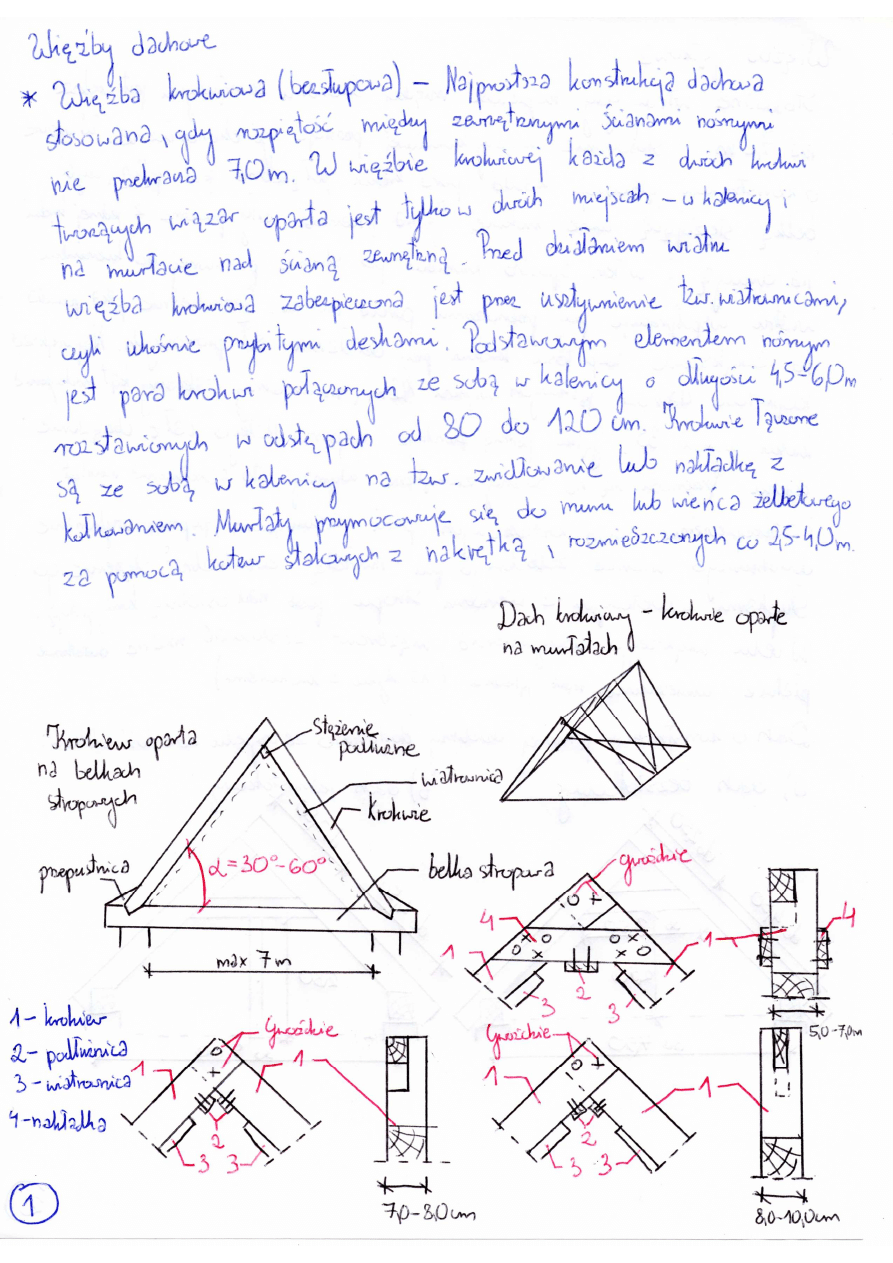 Więźby dachowe
* Więźba krokwiowa (bezsłupowa) – Najprostsza konstrukcja dachowa
stosowana, gdy rozpiętość między zewnętrznymi ścianami nośnymi
nie przekracza 7,0m. W więźbie krokwiowej każda z dwóch krokwi
tworzących wiązar oparta jest tylko w dwóch miejscach – w kalenicy i
na murłacie nad ścianą zewnętrzną. Przed działaniem wiatru
więźba krokwiowa zabezpieczona jest przez usztywnienie tzw. wiatrownicami,
czyli ukośnie przybitymi deskami. Podstawowym elementem nośnym
jest para krokwi połączonych ze sobą w kalenicy o długości 4,5-6,0m
rozstawionych w odstępach od 80 do 120 cm. Krokwie łączone
są ze sobą w kalenicy na tzw. zwidłowanie lub nakładkę z
kołkowaniem. Murłaty przymocowuje się do muru lub wieńca żelbetowego
za pomocą kotew stalowych z nakrętką, rozmieszczonych co 2,5-4,0m.
Dach krokwiowy – krokwie oparte
na murłatach
Krokiew oparta
na belkach
stropowych
Stężenie
podłużne
wiatrownica
krokwie
przepustnica
α=30°-60°
belka stropowa
max 7m
gwoździe
4
1
2
3
3
1
4
5,0-7,0m
1 – krokiew
2 – podłużnica
3 – wiatrownica
4 – nakładka
Gwoździe
1
1
2
3
3
7,0-8,0cm
Gwoździe
1
1
2
3
3
8,0-10,0cm
1